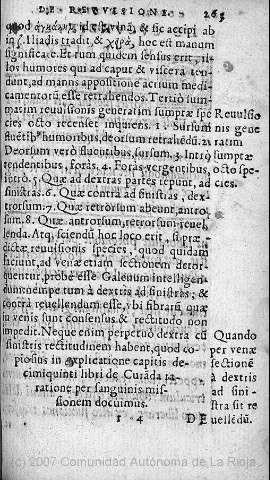 DE REVVLSIONE. 263
quod ἀγκάλην, id est vlnā, & sic accipi ab
in Iliadis tradit, & χεῖρα, hoc est manum
significare. Et tum quidem sensus erit, il-
los humores qui ad caput & viscera ten-
dunt, ad manns appositione acrium medi-
camentorū esse retrahendos. Tertiò sum-
matim reuulsionis generatim sumptæ spe
cies octo recenset inquiens. 1. Sursum
fluētib° humoribus, deorsum retrahēdū. 2.
Deorsum verò fluentibus, sursum. 3. Intrò
tendentibus, foràs. 4. Foràs vergentibus,
intrò. 5. Quæ ad dextras partes repunt, ad
sinistras. 6. Quæ contrà ad sinistras, dex-
trorsum. 7. Quæ retrorsum abeunt, antror
sum. 8. Quæ antrorsum, retrorsum reuel-
lenda. Atq; sciendū hoc loco erit, si præ-
dictæ reuulsionis species, quod quidam
faciunt, ad venæ etiam sectionem detor-
quentur, probè esse Galenum intelligen-
dum: nempe tùm à dextris ad sinistras: &
contrà reuellendum esse, vbi fibrarū quæ
in venis sunt consensus, & rectitudo non
impedit. Neque enim perpetuò dextra cū
sinistris rectitudinem habent, quod co-
piosius in explicatione capitis de-
cimiquinti libri de Curādа
ratione per sanguinis mis-
sionem docuimus.
I 4 DE
Reuulsio
nis gene
ratim
sumptæ
octo spe-
cies.
Quando
per venæ
sectionē
à dextris
ad sini-
stra sit re
uellēdū.
(c) 2007 Comunidad Autónoma de La Rioja